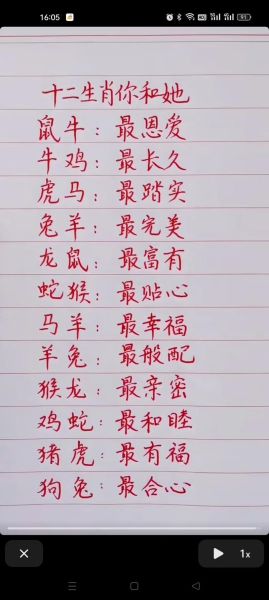 16:05
十二生肖你和她
鼠牛：最恩爱
牛鸡：最长久
虎马：最踏实
兔羊：最完美
龙鼠：最富有
蛇猴：最贴心
马羊：最幸福
羊兔：最般配
猴龙：最亲密
鸡蛇：最和睦
猪虎：最有福
狗兔：最合心
1x